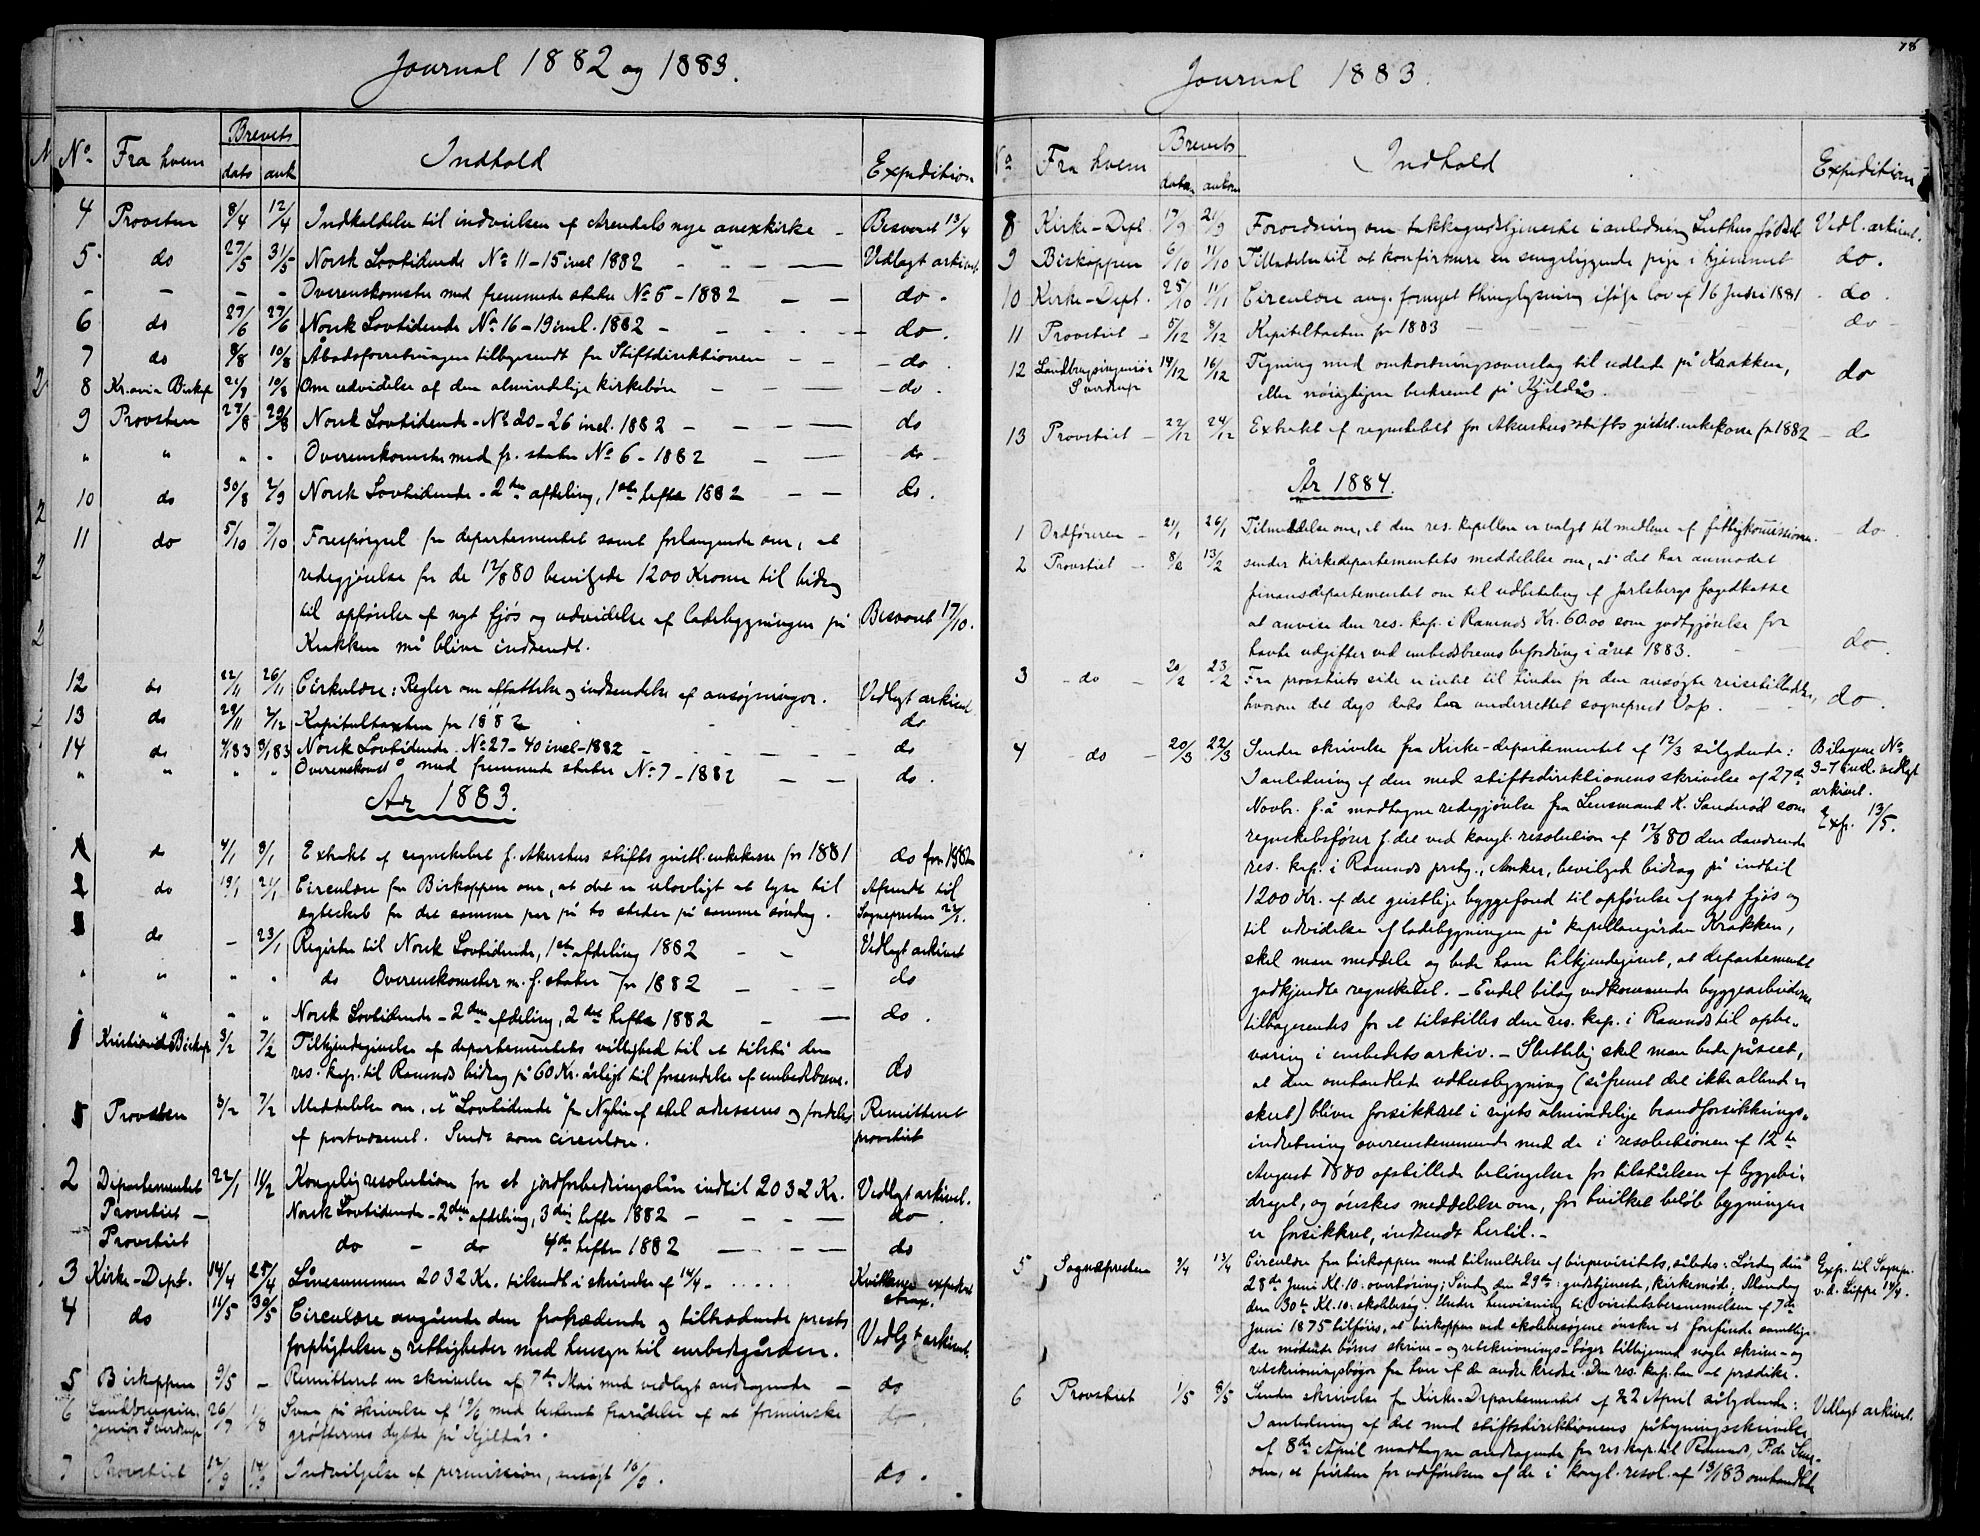 Journal 1882 og 1883.
No. Fra hvem Brevets dato ank Indhold Expedition
4 Provsten 8/4 12/4 Indkaldelse til indvielsen af Arendals nye anexkirke – Besvaret 13/4
5 do 27/5 31/5 Norsk Lovtidende No 11–15 incl 1882 – – – Vedlagt arkivet
– – – – Overenskomster med fremmede stater No 5–1882 – – do.
6 do 27/6 29/6 Norsk Lovtidende No 16–19 incl. 1882 – – – do.
7 do 8/8 10/8 Åbodsforretningen tilbagesendt fra Stiftdirektionen – – do
8 Kr.ania Biskop 21/8 Om udvidelse af den almindelige kirkebön – – – do.
9 Provsten 27/8 29/8 Norsk Lovtidende – No 20–26 incl. 1882 – – – do
" " " " Overenskomster med fr. stater No 6–1882 – – do
10 do 30/8 2/9 Norsk Lovtidende – 2den afdeling, 1ste hefte 1882 – – do.
11 do 5/10 7/10 Forespørgsel fra departementet samt forlangende om, at
redegjørelse for de 12/8 80 bevilgede 1200 Kroner til bidrag
til opførelse af nyt fjøs og udvidelse af ladebygningen på Besvaret 17/10.
Krakken må blive indsendt.
12 do 22/11 26/11 Cirkulære: Regler om affattelse og indsendelse af ansøgninger. Vedlagt arkivet
13 do 29/11 2/12 Kapitelstaxten for 1882 do
14 do Norsk Lovtidende No 27–40 incl–1882 – – – do
" " " " Overenskomst med fremmede stater No 7–1882 – – do.
År 1883.
1 do 4/1 9/1 Extrakt af regnskabet f. Akershus stifts geistl. enkekasse for 1881 do
2 do 19/1 21/1 Circulære fra Biskoppen om, at det er ulovligt at lyse til Afsendt til
ægteskab for det samme par på to steder på samme søndag. Sognepresten 22/1.
do – 23/1 Register til Norsk Lovtidende, 1ste afdeling 1882 – – Vedlagt arkivet
" " " " do Overenskomster m. f. stater for 1882 – – – do
" " " Norsk Lovtidende – 2den afdeling, 2det hefte 1882 – – do.
1 Kristiania Biskop 3/2 7/2 Tilkjendegivelse af departementets villighed til at tilstå den
res. kap. til Ramnes bidrag på 60 Kr. årligt til forsendelse af embedsbreve. do
Provsten 3/2 7/2 Meddelelse om, at "Lovtidende" fra Nytår af skal adresseres og fordeles Remitteret
af postvæsenet. Sendt som circulære. provstiet
2 Departementet 22/1 Kongelig resolution for et jordforbedringslån indtil 2032 Kr. Vedlagt arkivet.
Provstiet – Norsk Lovtidende – 2den afdeling, 3die hefte 1882 – – – do
Provstiet do – do 4de hefte 1882 – – – do
3 Kirke-Dept. 14/4 25/4 Lånesummen 2032 Kr. tilsendt i skrivelse af 14/4 – Kvitteret expederet strax.
4 do 11/5 30/5 Circulære angående den fratrædende og tiltrædende prests
forpligtelser og rettigheder med hensyn til embedsgården. Vedlagt arkivet.
5 Biskoppen 9/5 – Remitteret en skrivelse af 7de Mai med vedlagt andragende – do
6 Landbrugsin- 26/7 1/8 Svar på skrivelse af 19/6 med bestemt fraråden af at formindske do
geniør Sverdrup grøfternes dybde på Kjeldås.
7 Provstiet 12/9 14/9 Indvilgelse af permission, ansøgt 10/9. do.
78
Journal 1883.
No Fra hvem Brevets datum ankom Indhold Expedition
8 Kirke-Dept. 17/9 21/9 Forordning om takkegudstjeneste i anledning Luthers fødsel Vedl. arkivet.
9 Biskoppen 6/10 11/10 Tilladelse til at konfirmere en sengeliggende pige i hjemmet do.
10 Kirke-Dept. 25/10 11/11 Circulære ang. fornyet thinglysning ifølge lov af 16 Juni 1881 – do
11 Provstiet – 5/12 8/12 Kapitelstaxten for 1883 – – – do
12 Landbrugsingeniør 14/12 16/12 Tegning med omkostningsoverslag til udlade på Krakken,
Sverdrup eller nøiagtigere beskrevet på Kjeldås. – – do
13 Provstiet – 22/12 24/12 Extrakt af regnskabet for Akershus stifts geistl. enkekasse for 1882 – do
År 1884.
1 Ordføreren – 21/1 26/1 Tilmeldelse om, at den res. kapellan er valgt til medlem af fattigkommissionen. – do.
2 Provstiet – 8/2 13/2 sender kirkedepartementets meddelelse om, at det har anmodet
finansdepartementet om til udbetaling af Jarlsbergs fogedkasse
at anvise den res. kap. i Ramnes Kr. 60.00 som godtgjørelse for
havte udgifter ved embedsbreves befordring i året 1883. – – do.
3 – do – 20/2 23/2 Fra provstiets side er intet til hinder for den ansøgte reisetilladelse,
hvorom det dags dato har underrettet sogneprest Vop. – – do.
4 do – 20/3 22/3 Sender skrivelse fra Kirke-departementet af 12/3 sålydende: Bilagene No
I anledning af den med stiftsdirektionens skrivelse af 27de 3–7 incl. vedlagt
Novbr. f. å modtagne redegjørelse fra Lensmand K. Sanderød som arkivet.
regnskabsfører f. det ved kongl. resolution af 12/8 80 den daværende Exp. 13/5.
res. kap. i Ramnes prstg., Anker, bevilgede bidrag på indtil
1200 Kr. af det geistlige byggefond til opførelse af nyt fjøs og
til udvidelse af ladebygningen på kapellangården Krakken,
skal man meddele og bede ham tilkjendegivet, at departementet
godkjendte regnskabet. – Endel bilag vedkommende byggearbeiderne
tilbagesendes for at tilstilles den res. kap. i Ramnes til opbe-
varing i embedets arkiv. – Sluttelig skal man bede påseet,
at den omhandlede udhusbygning (såfremt det ikke allerede er
skeet) bliver forsikkret i rigets almindelige brandforsikkrings-
indretning overensstemmende med de i resolutionen af 12te
August 1880 opstillede betingelser for tilståelsen af byggebi-
draget, og ønskes meddelelse om, for hvilket beløb bygningen
er forsikkret, indsendt hertil. –
5 Sognepresten 9/4 13/4 Circulære fra biskoppen med tilmeldelse af bispevisitats, således: Lørdag den Exp. til Sognepr.
28de Juni Kl. 10. overhøring; Søndag den 29te: gudstjeneste, kirkemøde; Mandag v. d. Lippe 14/4.
den 30te Kl. 10. skolebesøg. Under henvisning til visitatsberammelsen af 7de
Juni 1875 tilføies, at biskoppen ved skolebesøgene ønsker at forefinde samtlige
de mødende børns skrive- og retskrivnings-bøger tilligemed nogle skrive- og
retskrivningsbøger fra hver af de andre kredse. Den res. kap. har at prædike.
6 Provstiet 1/5 8/5 Sender skrivelse fra Kirke-Departementet af 22 April sålydende: Vedlagt arkivet.
I anledning af det med stiftsdirektionens påtegningsskrivelse
af 8de April modtagne andragende fra res. kap. til Ramnes,
om, at fristen for udførelsen af de i kongl. resol. af 13/1 83 omhandlede